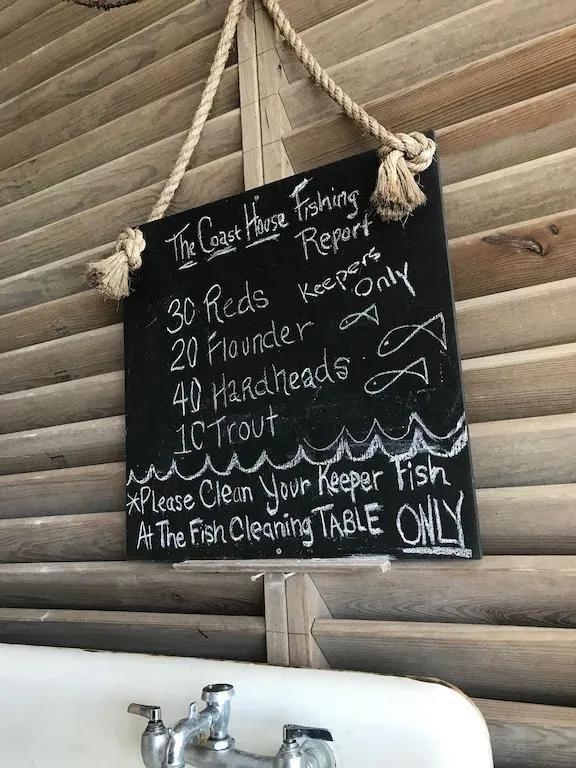 The Coast House Fishing
Report
Keepers
Only
30 Reds
20 Flounder
40 Hardheads
10 Trout
*Please Clean Your Keeper Fish
At The Fish Cleaning TABLE ONLY